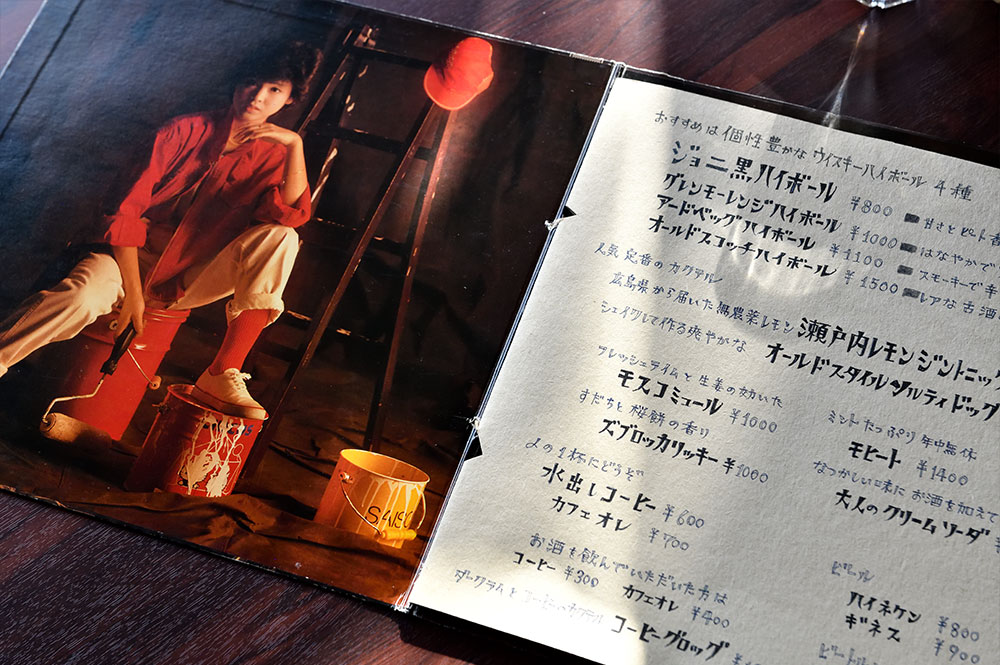 おすすめは個性豊かなウイスキーハイボール 4種
ジョニ黒ハイボール ¥800 甘さとピート香
グレンモーレンジハイボール ¥1000 はなやかで
アードベッグハイボール ¥1100 スモーキーで辛
オールドスコッチハイボール ¥1500 レアな古酒
人気定番のカクテル
広島県から届いた無農薬レモン 瀬戸内レモンジントニック
シェイクして作る爽やかな オールドスタイルソルティドッグ
フレッシュライムと生姜の効いた
モスコミュール ¥1000
ミントたっぷり年中無休
モヒート ¥1400
すだちと桜餅の香り
ズブロッカリッキー ¥1000
なつかしい味にお酒を加えて
大人のクリームソーダ
〆の1杯にどうぞ
水出しコーヒー ¥600
カフェオレ ¥700
お酒を飲んでいただいた方は
コーヒー ¥300 カフェオレ ¥400
ダークラムと
コーヒーグロッグ
ビール
ハイネケン ¥800
ギネス ¥900